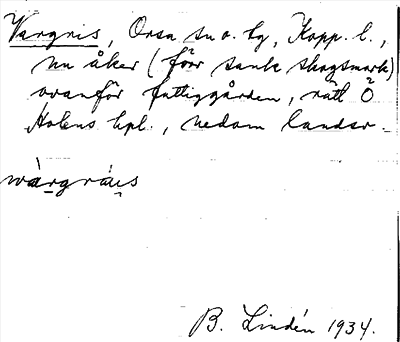 Vargris, Orsa sn o. by, Kopp. l.,
nu åker (förr sank skogsmark)
ovanför fattiggården, rätt Ö
Holens hpl., nedom landsv.
wàrgràis
B. Lindén 1934.